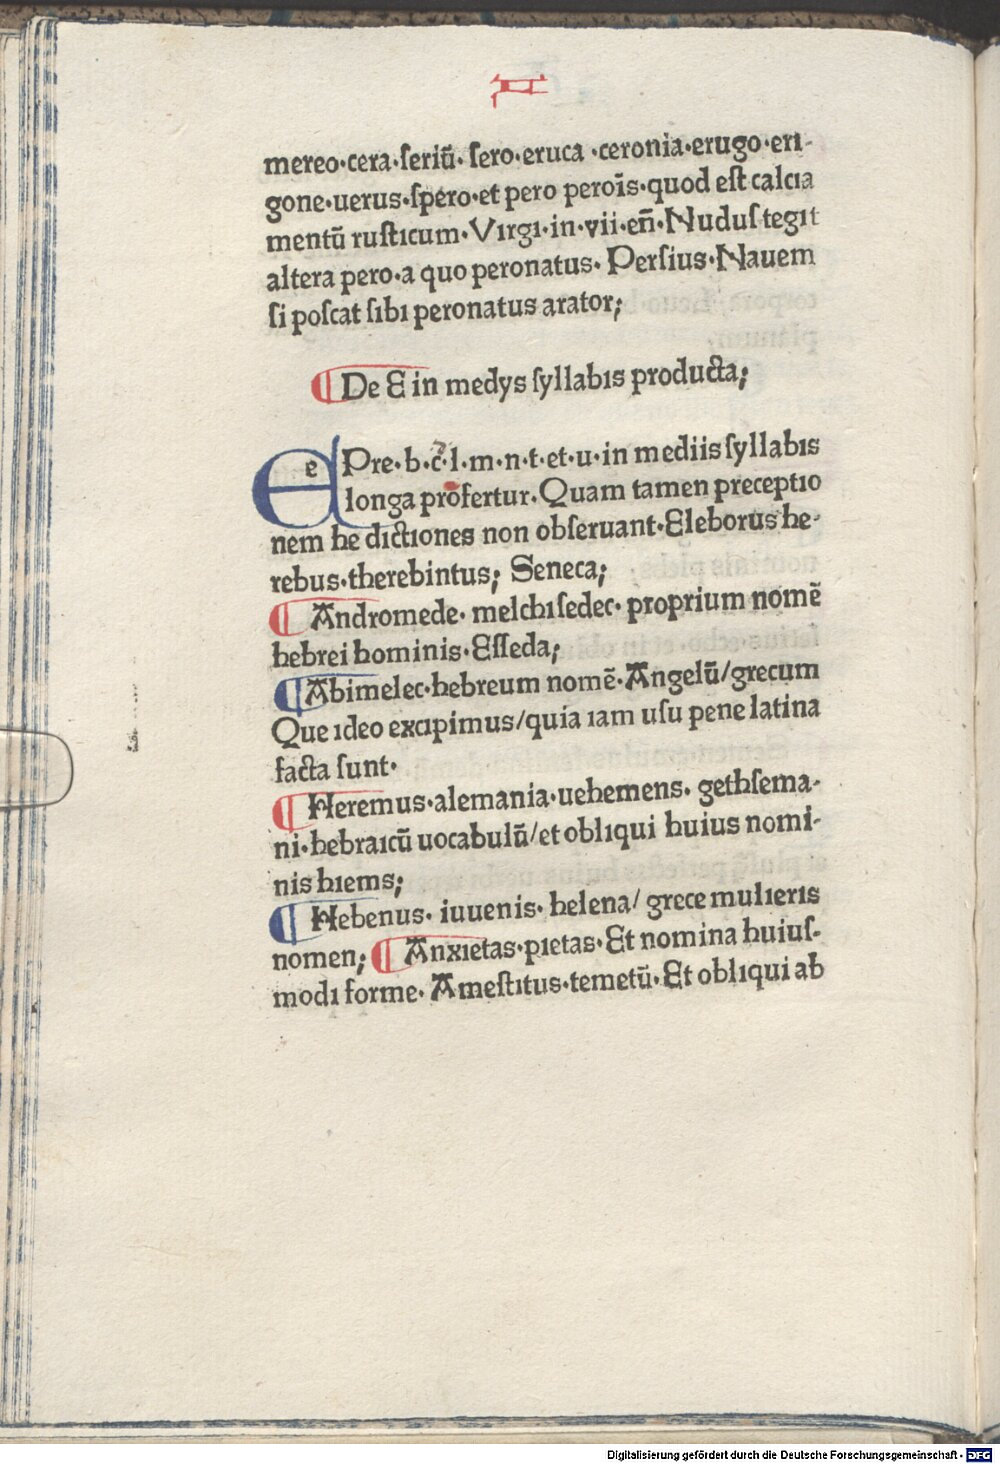 mereo·cera·ſeriū· ſero·eruca ·ceronia·erugo·eri-
gone·uerus·ſpero·et pero peroīs·quod eſt calcia
mentū ruſticum·Virgi·in·vii·eñ·Nuduſ tegit
altera pero·a quo peronatus· Perſius·Nauem
ſi poſcat ſibi peronatus arator;
De E in medys ſyllabis producta;
e Pre·b·c·l·m·n·t·et·u·in mediis ſyllabis
longa profertur·Quam tamen preceptio
nem he dictiones non obſeruant·Eleborus he-
rebus·therebintus; Seneca;
Andromede· melchiſedec· proprium nomē
hebrei hominis·Eſſeda;
Abimelec·hebreum nomē·Angelū/grecum
Que ideo excipimus/quia iam uſu pene latina
facta ſunt·
Heremus·alemania·uehemens· gethſema-
ni·hebraicū uocabulū/et obliqui huius nomi-
nis hiems;
Hebenus· iuuenis· helena/ grece mulieris
nomen; Anxietas·pietas·Et nomina huiuſ-
modi forme· Ameſtitus·temetū·Et obliqui ab
Digitalisierung gefördert durch die Deutsche Forschungsgemeinschaft - DFG